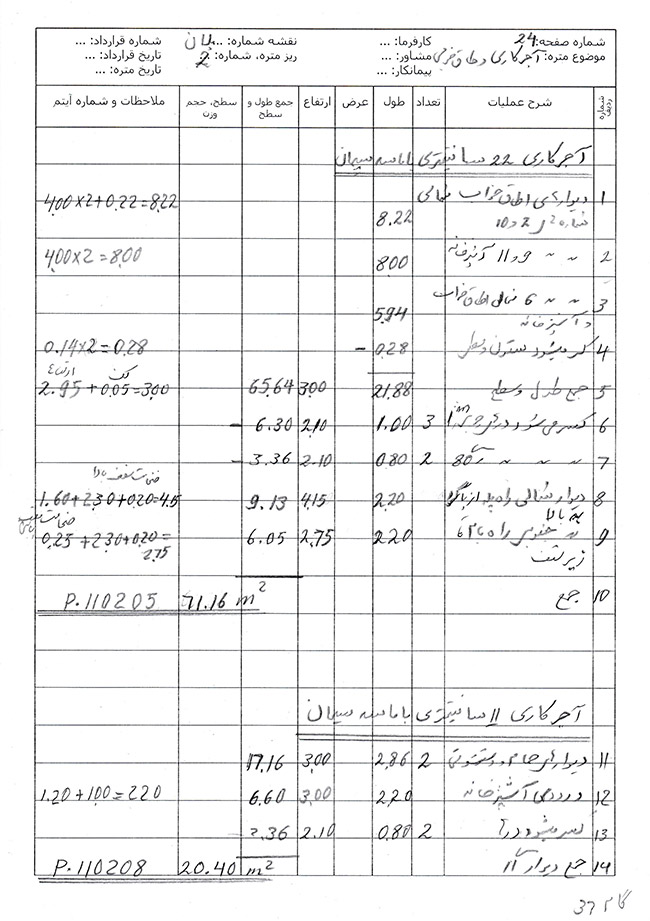 شماره صفحه: 24 کارفرما: ... نقشه شماره: ... پلان شماره قرارداد: ...
موضوع متره: آجرکاری و طاق ضربی مشاور: ... ریز متره، شماره: 2 تاریخ قرارداد: ...
پیمانکار: ... تاریخ متره: ...
شماره ردیف شرح عملیات تعداد طول عرض ارتفاع جمع طول و سطح سطح، حجم وزن ملاحظات و شماره آیتم
آجرکاری 22 سانتیمتری با ماسه سیمان
1 دیوارهای اطاق خواب شمالی 4.00×2+0.22=8.22
شماره 2 و 10 8.22
2 " " 9 و 11 آشپزخانه 8.00 4.00×2=8.00
3 " " 6 شمالی اطاق خواب 5.94
و آشپزخانه
4 کسر میشود ستون وسطی 0.28 - 0.14×2=0.28
ارتفاع کف
5 جمع طول و سطح 21.88 3.00 65.64 2.95+0.05=3.00
6 کسر می شود درهای 1m 3 1.00 2.10 6.30 -
7 " " " 80 2 0.80 2.10 3.36 -
ضخامت سقف بالا
8 دیوار شمالی راه پله از پاگرد 2.20 4.15 9.13 1.60+2.30+0.20=4.5
به بالا
ضخامت سقف
9 " جنوبی راه پله تا 2.20 2.75 6.05 0.25+2.30+0.20=
زیر سقف 2.75
10 جمع 71.16 m² P.110205
آجرکاری 11 سانتیمتری با ماسه سیمان
11 دیوارهای حمام و دستشوئی 2 2.86 3.00 17.16
12 ورودی آشپزخانه 2.20 3.00 6.60 1.20+1.00=2.20
13 کسر میشود در 2 0.80 2.10 3.36
14 جمع دیوار 11 20.40 m² P.110208
37